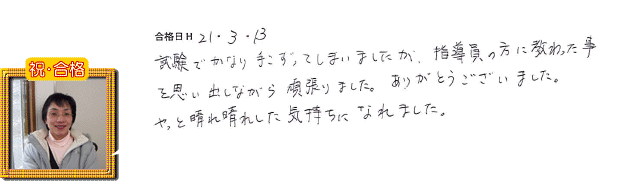 合格日 H 21・3・13
試験でかなり手こずってしまいましたが、指導員の方に教わった事
を思い出しながら頑張りました。ありがとうございました。
やっと晴れ晴れした気持ちになれました。
祝・合格